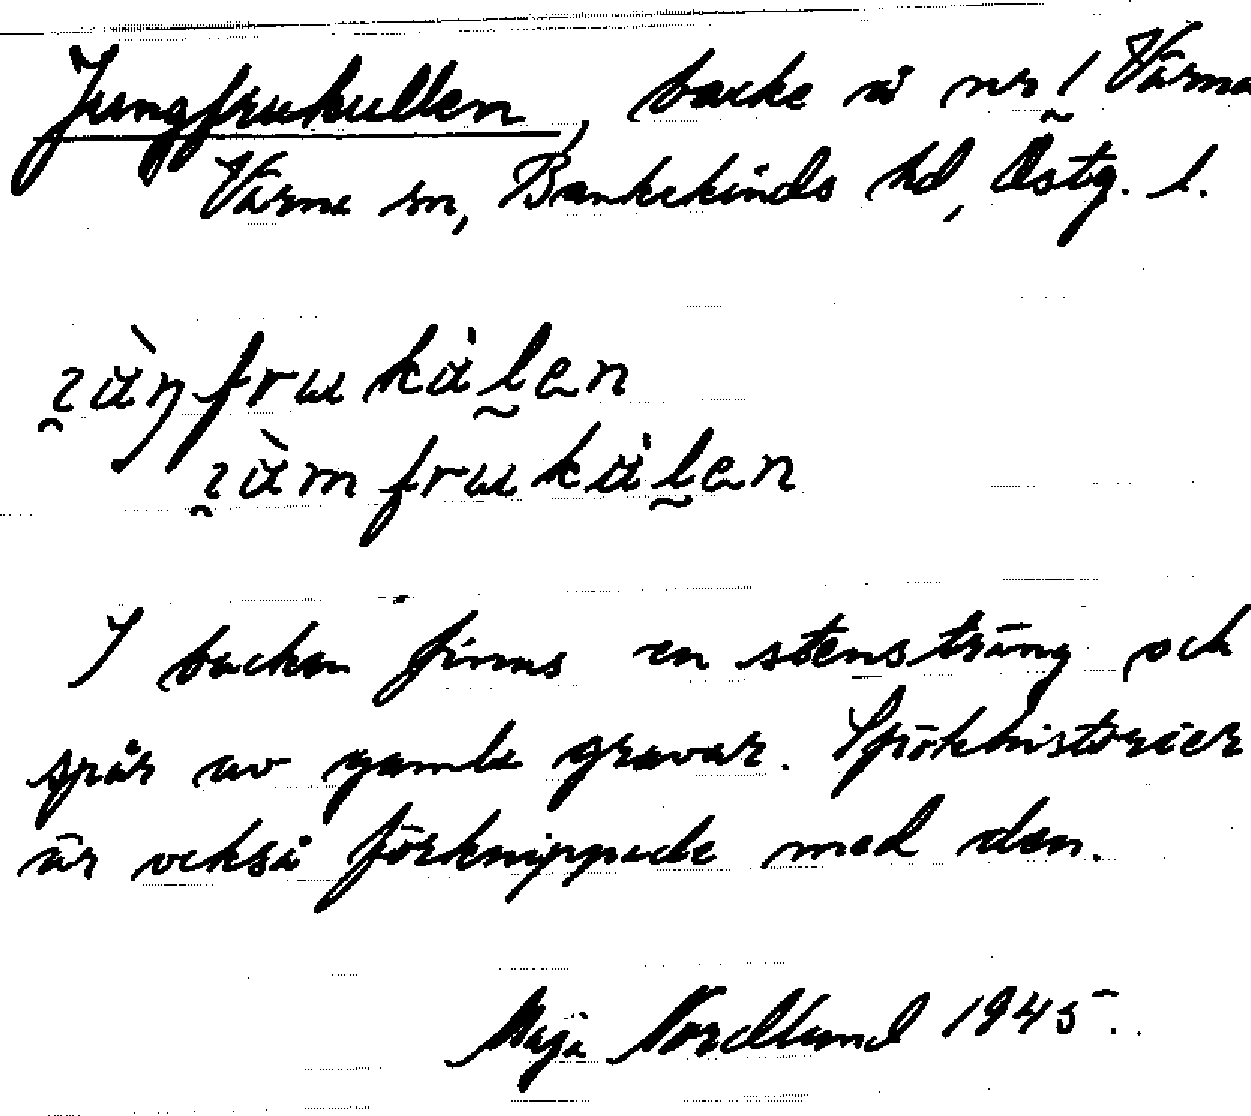 Jungfrukullen, backe å nr 1 Värna
Värna sn, Bankekinds hd, Östg. l.
I backen finns en stensträng och
spår av gamla gravar. Spökhistorier
är också förknippade med den.
Maja Nordlund 1945.